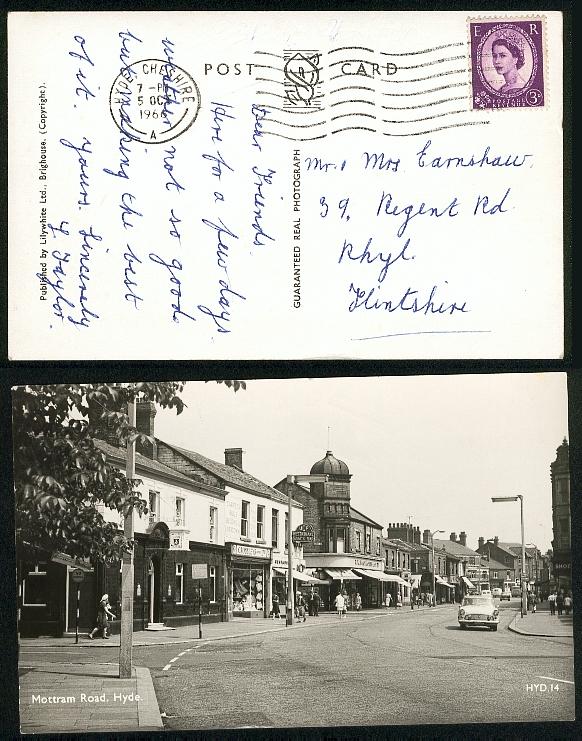 POST CARD
HYDE CHESHIRE
7 - PM
5 OCT
1966
A
E R
POSTAGE
REVENUE
3D
Dear Friends.
Here for a few days.
weather not so good
but making the best
of it. Yours. Sincerely
Taylor.
GUARANTEED REAL PHOTOGRAPH
Published by Lilywhite Ltd., Brighouse. (Copyright).
Mr. & Mrs Earnshaw.
39, Regent Rd
Rhyl.
Flintshire
Mottram Road, Hyde.
HYD.14